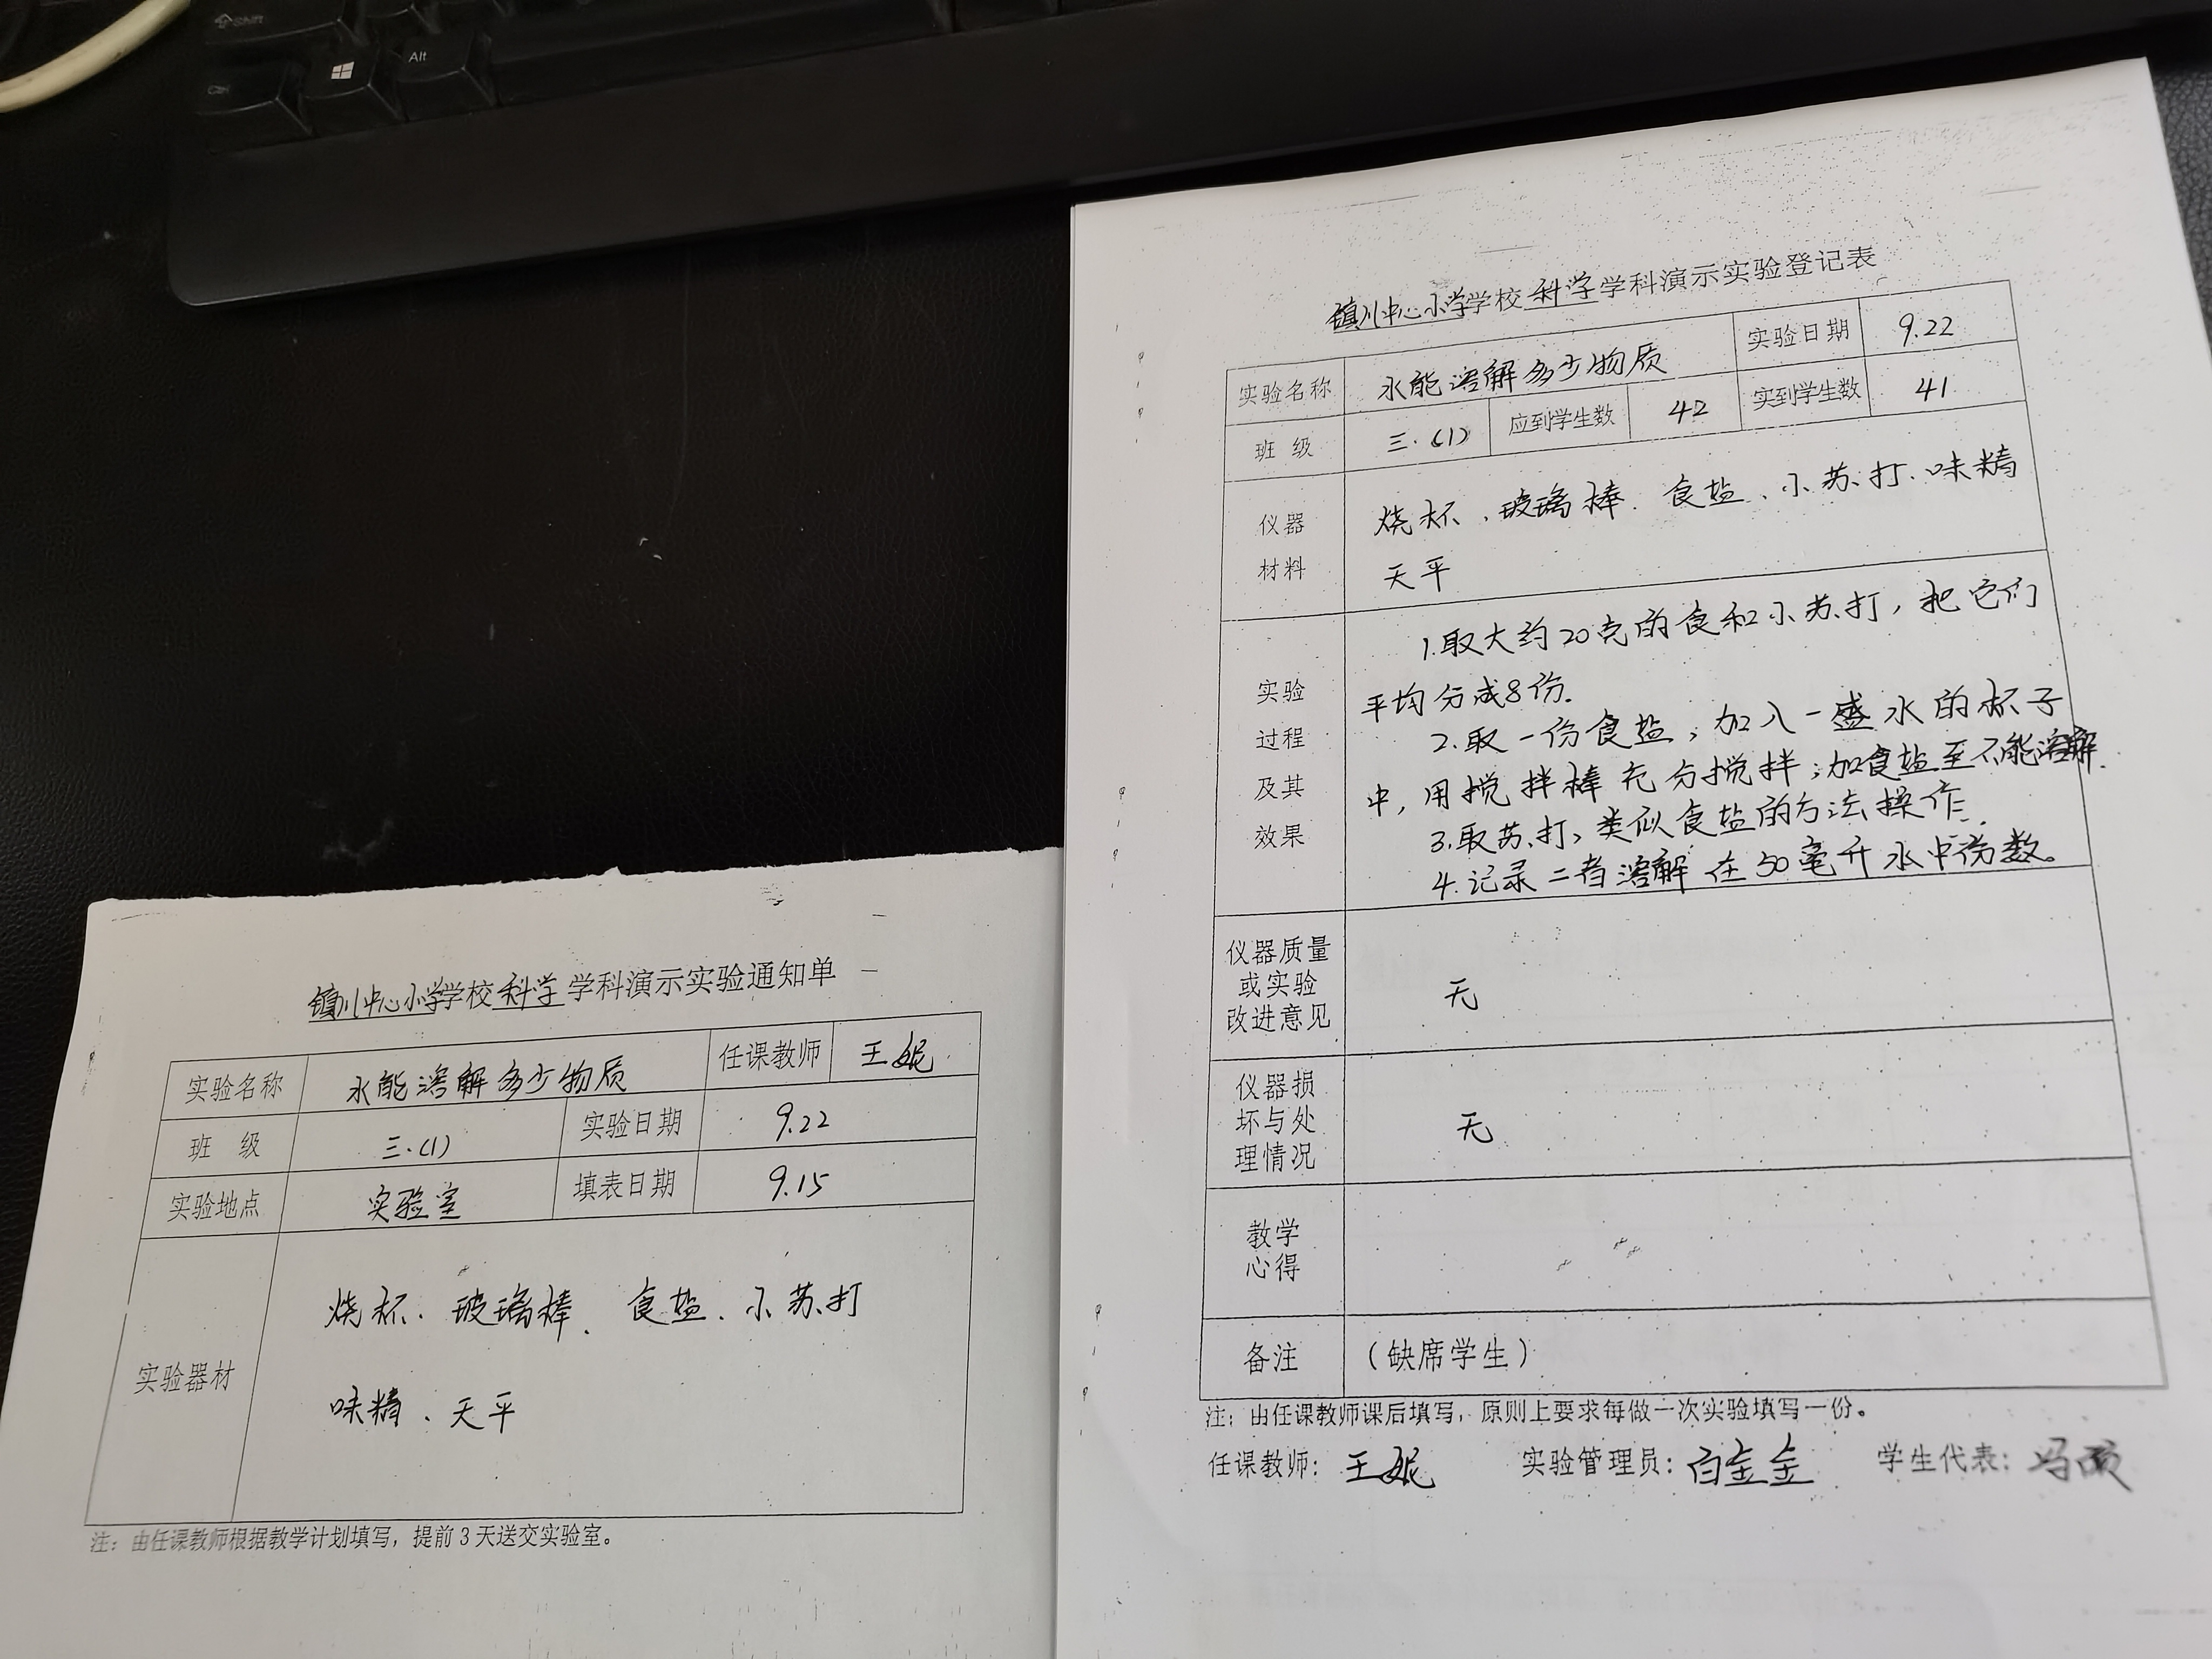 Shift
Alt
镇川中心小学学校科学学科演示实验通知单
实验名称 水能溶解多少物质 任课教师 王妮
班 级 三.(1) 实验日期 9.22
实验地点 实验室 填表日期 9.15
实验器材 烧杯、玻璃棒、食盐、小苏打
味精、天平
注：由任课教师根据教学计划填写，提前3天送交实验室。
镇川中心小学学校科学学科演示实验登记表
实验名称 水能溶解多少物质 实验日期 9.22
班 级 三.(1) 应到学生数 42 实到学生数 41
仪器
材料
烧杯、玻璃棒、食盐、小苏打、味精
天平
实验
过程
及其
效果
1.取大约20克的食和小苏打，把它们
平均分成8份.
2.取一份食盐，加入一盛水的杯子
中，用搅拌棒充分搅拌；加食盐至不能溶解.
3.取苏打，类似食盐的方法操作.
4.记录二者溶解在50毫升水中份数。
仪器质量
或实验
改进意见
无
仪器损
坏与处
理情况
无
教学
心得
备注 （缺席学生）
注：由任课教师课后填写，原则上要求每做一次实验填写一份。
任课教师：王妮 实验管理员：白金金 学生代表：冯